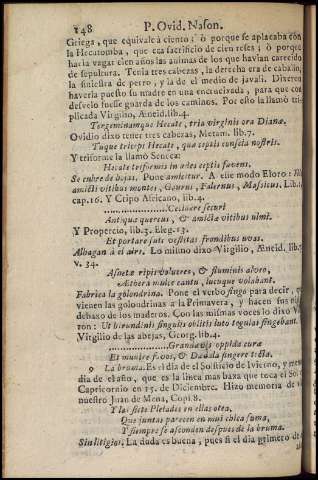 148 P. Ovid. Nason.
Griega, que equivale à ciento; ò porque se aplacaba con
la Hecatomba, que era sacrificio de cien reses; ò porque
hacia vagar cien años las animas de los que havian carecido
de sepultura. Tenia tres cabezas, la derecha era de caballo,
la siniestra de perro, y la de el medio de javali. Diversos
haveria puesto su madre en una encrucixada, para que con
desvelo fuesse guarda de los caminos. Por esto la llamò tri-
plicada Virgilio, Æneid. lib. 4.
Tergeminamque Hecate, tria virginis ora Dianæ.
Ovidio dixo tener tres cabezas, Metam. lib. 7.
Tuque triceps Hecate, que cœptis conscia nostris.
Y triforme la llamó Seneca:
Hecate triformis in artes septis favens.
Se cubre de hojas. Pone amicitur. A este modo Floro:
amicti vitibus montes, Gaurus, Falernus, Massicus. Lib. 1.
cap. 16. Y Cripo Africano, lib. 4.
Cecidere securi
Antiqua quercus, & amictæ vitibus ulmi.
Y Propercio, lib. 3. Eleg. 13.
Et portare suis vestitas frondibus uvas.
Albagan à el aire. Lo mismo dixo Virgilio, Æneid. lib. 7.
v. 34.
Assuetæ ripis volucres, & fluminis alveo,
Æthera mulcebant cantu, lucuque volabant.
Fabrica la golondrina. Pone el verbo fingo para decir, que
vienen las golondrinas a la Primavera, y hacen sus nidos
debaxo de los maderos. Con las mismas voces lo dixo Va-
ron: Ut hirundinis singulis oblitis luto tegulas fingebant.
Virgilio de las abejas, Georg. lib. 4.
Grandævis oppida curæ
Et munire favos, & Dædala fingere tecta.
9 La bruma. Es el dia de el Solsticio de Ivierno, y
dia de el año, que es la linea mas baxa que toca el Sol
Capricornio en 15. de Diciembre. Hizo memoria de
nuestro Juan de Mena, Copl. 8.
Y las siete Pleiades en ellas otea,
Que juntas parecen en mui chica suma,
Y siempre se asconden despues de la bruma.
Sin litigios. La duda es buena, pues si el dia primero de